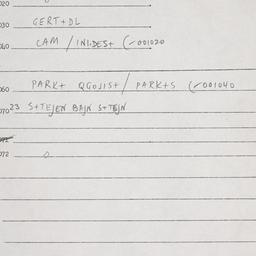 020
030 GERT+DL
CAM / INI.DES+ (-001020
060 PARK+ QGOJIST / PARK+S (-001040
070 23 S+TEJEN BAJN S+TEJN
072